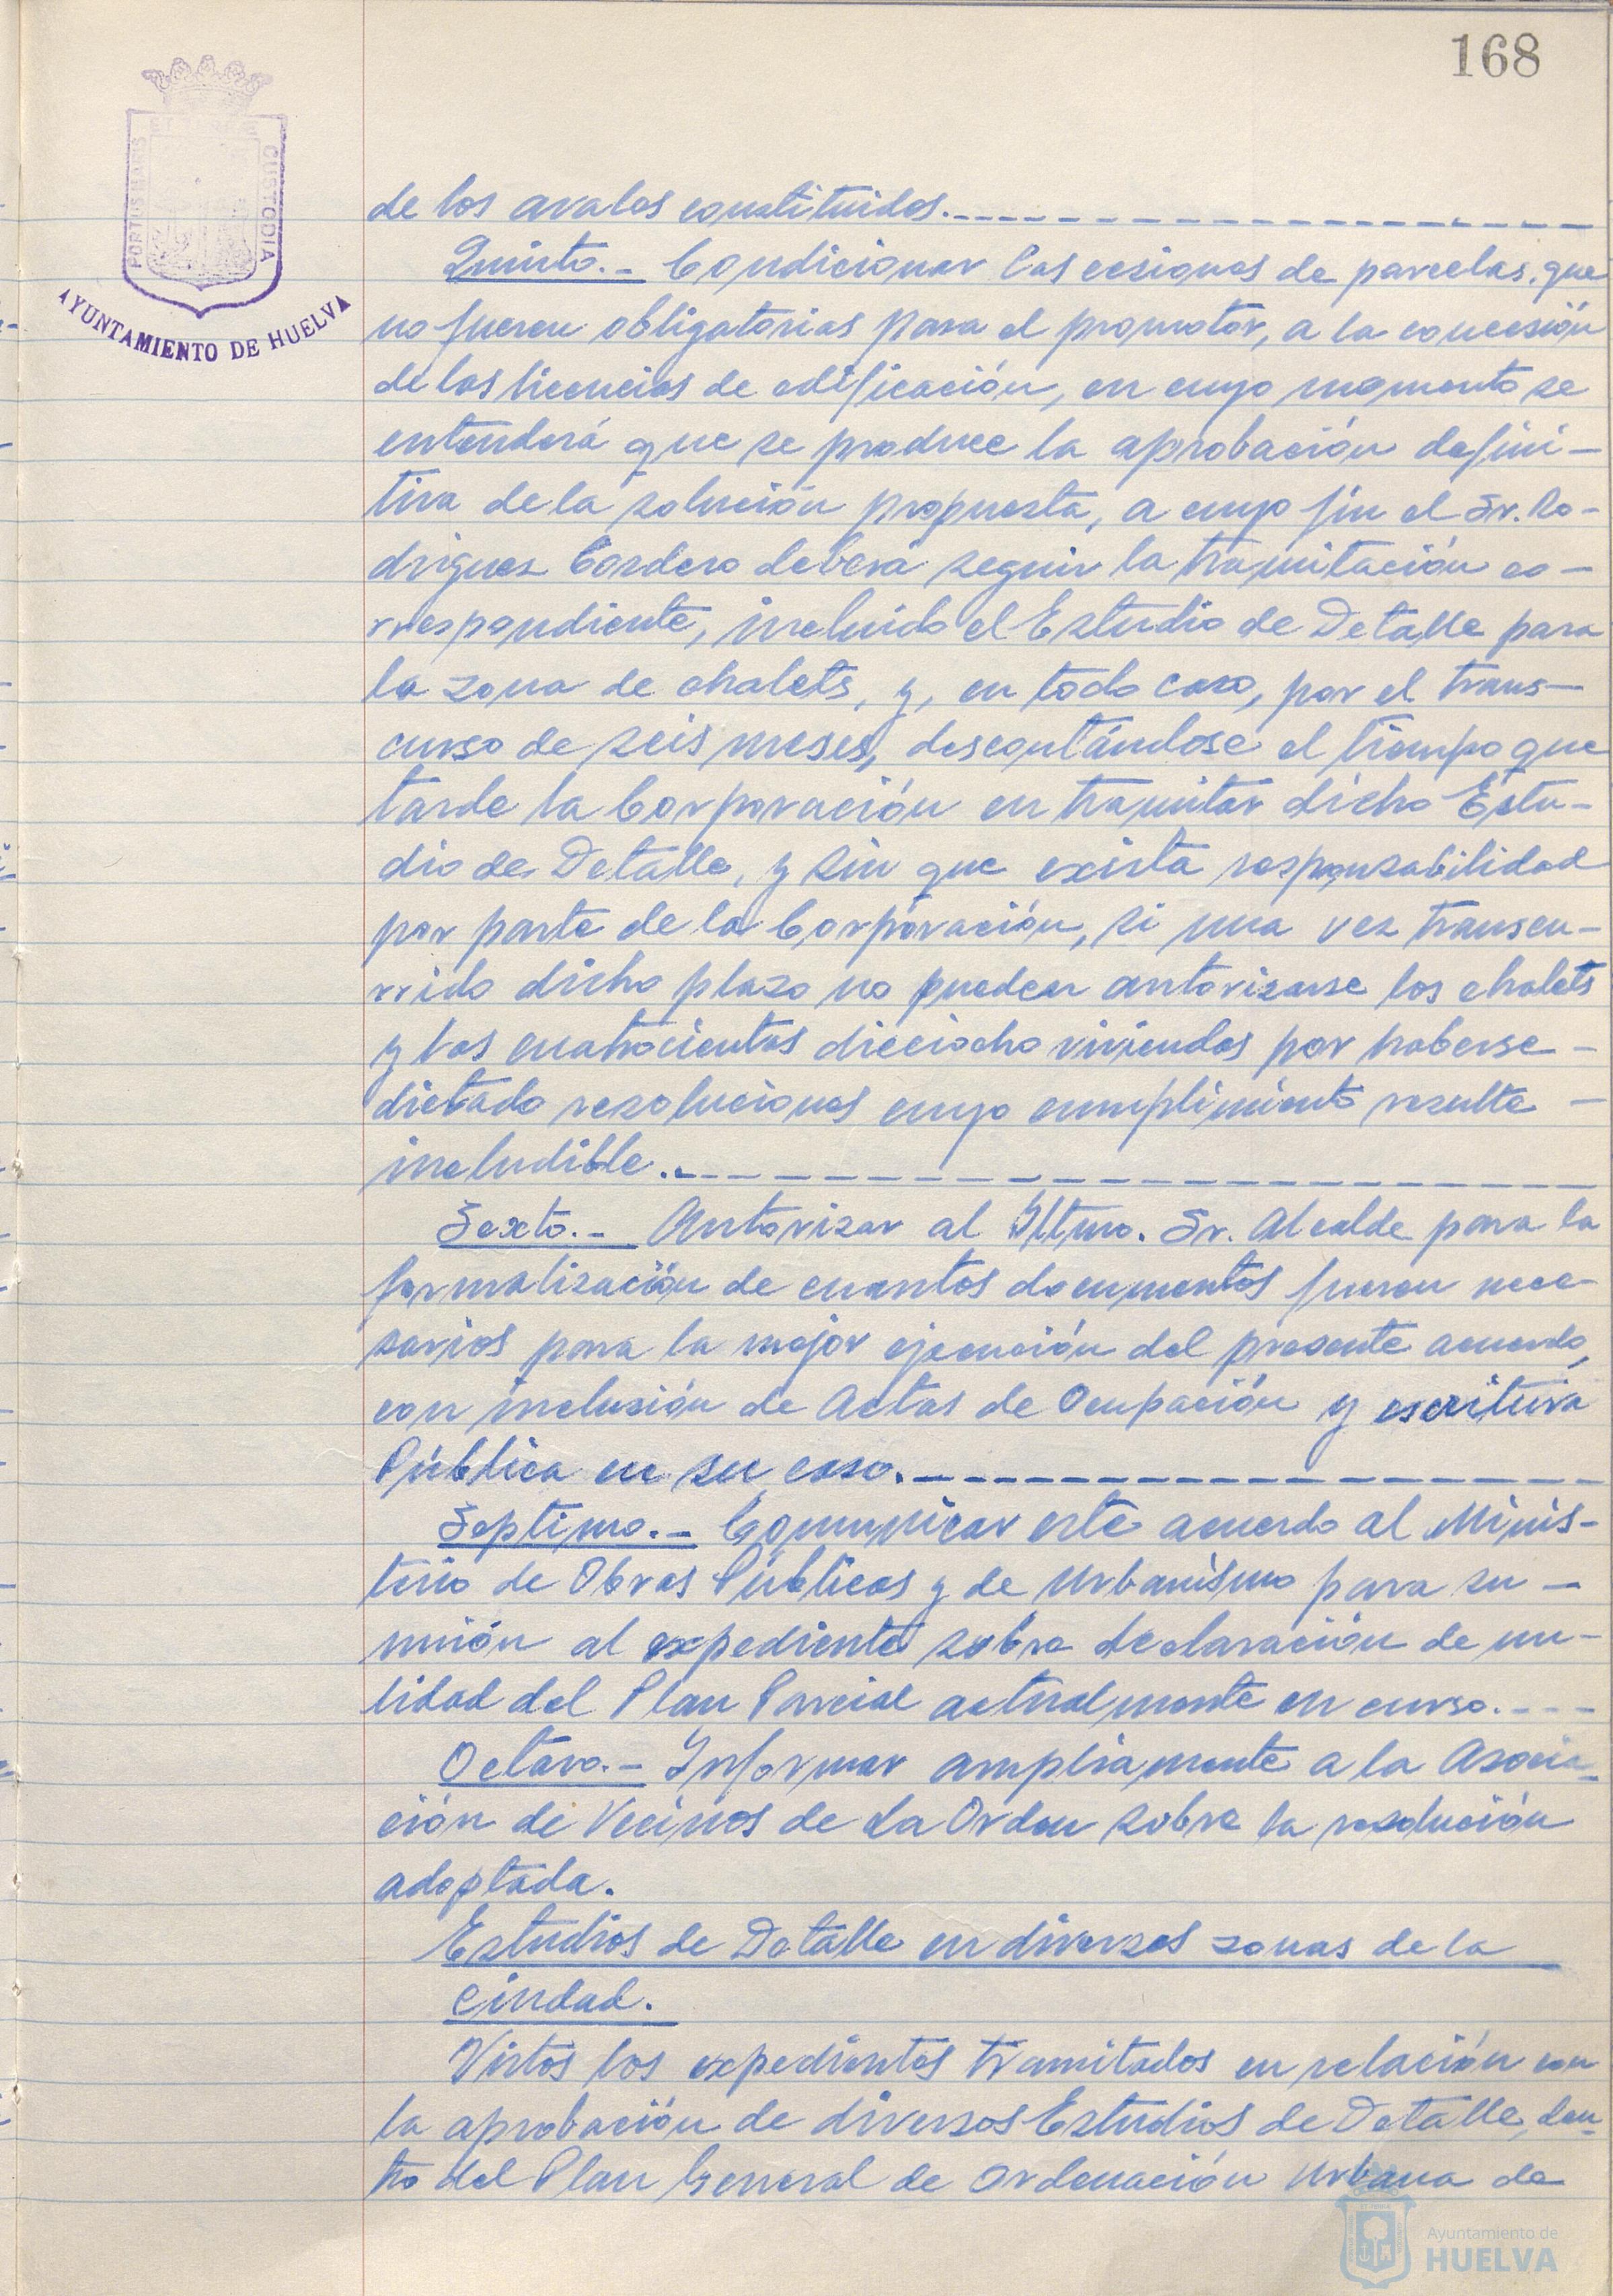 168
PORTUS MARIS
CUSTODIA
AYUNTAMIENTO DE HUELVA
de los avales constituidos.
Quinto.- Condicionar las cesiones de parcelas, que
no fueren obligatorias para el promotor, a la concesión
de las licencias de edificación, en cuyo momento se
entenderá que se produce la aprobación defini-
tiva de la solución propuesta, a cuyo fin el Sr. Ro-
driguez Cordero deberá seguir la tramitación co-
rrespondiente, incluido el Estudio de Detalle para
la zona de chalets, y, en todo caso, por el trans-
curso de seis meses, descontándose el tiempo que
tarde la Corporación en tramitar dicho Estu-
dio de Detalle, y sin que exista responsabilidad
por parte de la Corporación, si una vez transcu-
rrido dicho plazo no pueden autorizarse los chalets
y las cuatrocientas dieciocho viviendas por haberse -
dictado resoluciones cuyo cumplimiento resulte -
ineludible.
Sexto.- Autorizar al Iltmo. Sr. Alcalde para la
formalización de cuantos documentos fueren nece-
sarios para la mejor ejecución del presente acuerdo,
con inclusión de Actas de Ocupación y escritura
Pública en su caso.
Septimo.- Comunicar este acuerdo al Minis-
terio de Obras Públicas y de Urbanismo para su -
unión al expediente sobre declaración de nu-
lidad del Plan Parcial actualmente en curso.
Octavo.- Informar ampliamente a la Asocia-
ción de Vecinos de La Orden sobre la resolución
adoptada.
Estudios de Detalle en diversas zonas de la
Ciudad.
Vistos los expedientes tramitados en relación con
la aprobación de diversos Estudios de Detalle, den-
tro del Plan General de Ordenación Urbana de
Ayuntamiento de
HUELVA